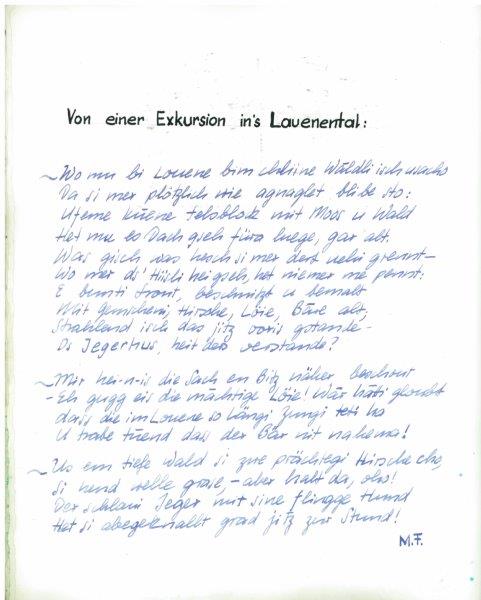 Von einer Exkursion in's Lauenental:
Wo mir bi Louene bim chliine Wäldli isch
Da si mer plötzlich wie agnaglet blibe sto:
Uf eme Felsblock mit Moos u Wald
Het me es Dach gseh füra luege, gar alt.
Was gisch was hesch si mer dert uehi grennt –
Wo mer ds' Hüsli hei gseh, het niemer me pennt.
E bunti Front, beschnitzt u bemalt
Mit Gemscheni, Hirsche, Löie, Bäre alt,
Strahlend isch das jitz voris gstande –
Ds Jegerhus, heit der verstande?
Mir hei-n-is die Sach en Bitz näher beschout
– Eh gugg eis die mächtige Löie! Wär hätti gloubt
dass die im Louene so längi Zungi teti ha
U trabe tüend das der Bär nit nahema!
Us em tiefe Wald si zwe prächtegi Hirsche cho,
Si hend welle grase, – aber halt da, oho!
Der schlaui Jeger mit sine flingge Hund
Het si abegeknallt grad jitz zur Stund!
M.F.